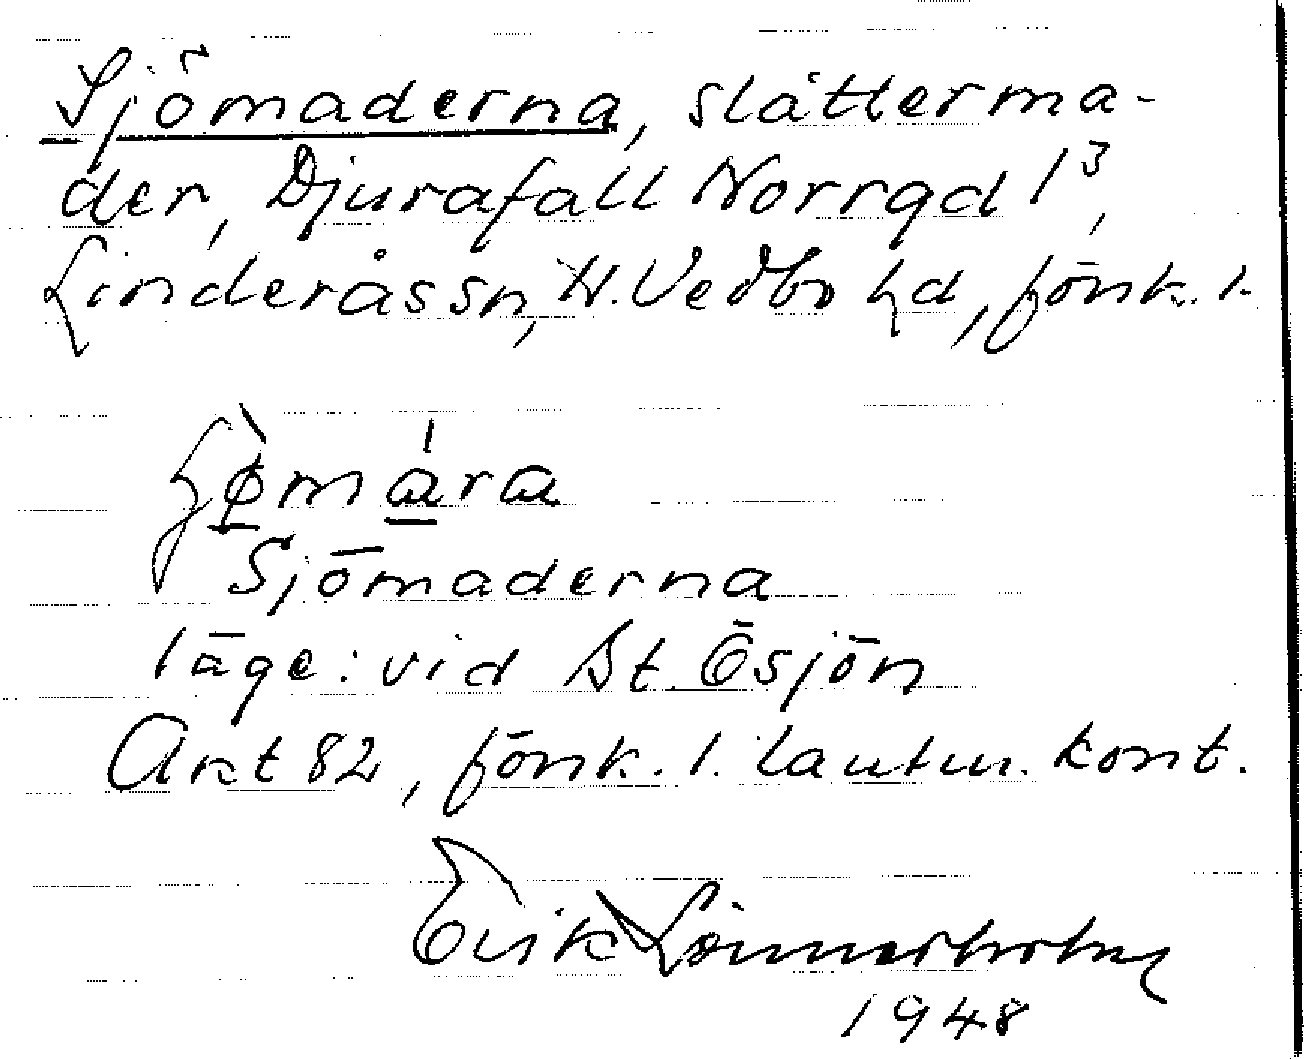 Sjömaderna, slåtterma-
der, Djurafall Norrgd 1³,
Linderås sn, N. Vedbo hd, Jönk. l.
Sjömaderna
läge: vid St. Ösjön
Akt 82, Jönk. l. lantm. kont.
Erik Lönnerholm
1948